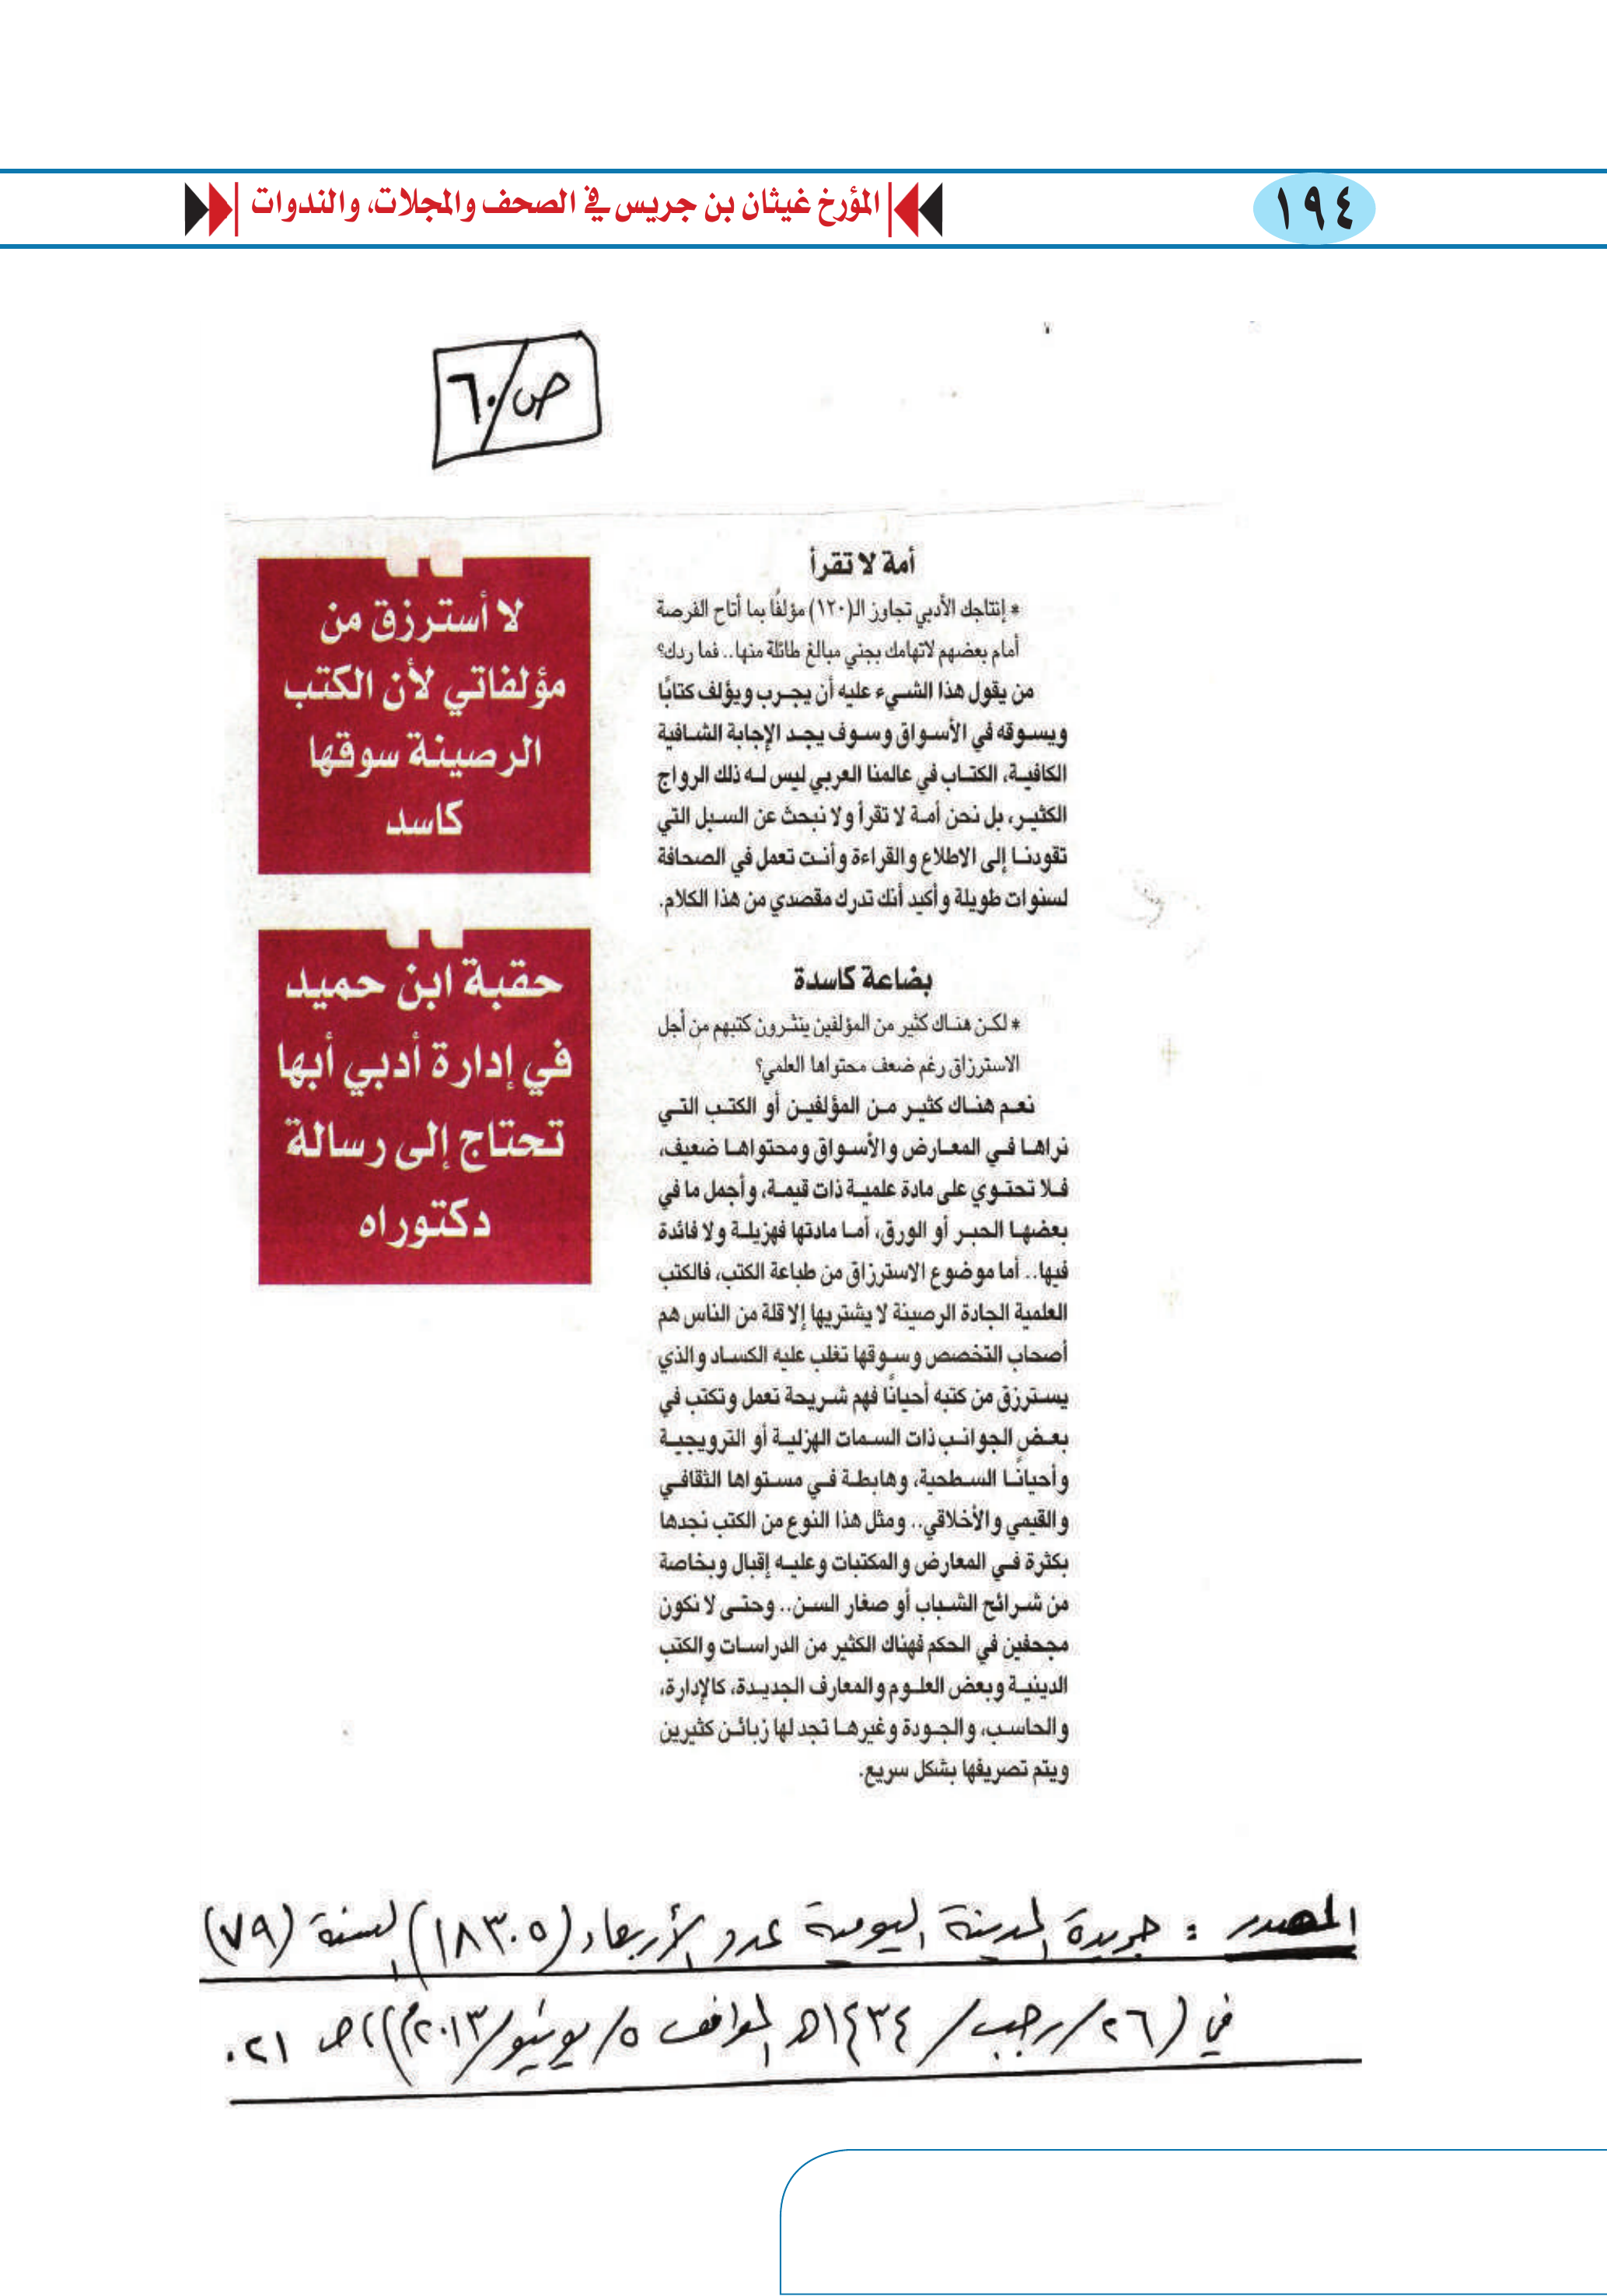 ١٩٤
المؤرخ غيثان بن جريس في الصحف والمجلات، والندوات
ص/٦٠
أمة لا تقرأ
* إنتاجك الأدبي تجاوز الـ(١٢٠) مؤلفًا بما أتاح الفرصة
أمام بعضهم لاتهامك بجني مبالغ طائلة منها.. فما ردك؟
من يقول هذا الشيء عليه أن يجرب ويؤلف كتابًا
ويسوقه في الأسواق وسوف يجد الإجابة الشافية
الكافية، الكتاب في عالمنا العربي ليس له ذلك الرواج
الكثير، بل نحن أمة لا تقرأ ولا نبحث عن السبل التي
تقودنا إلى الاطلاع والقراءة وأنت تعمل في الصحافة
لسنوات طويلة وأكيد أنك تدرك مقصدي من هذا الكلام.
بضاعة كاسدة
* لكن هناك كثير من المؤلفين ينثرون كتبهم من أجل
الاسترزاق رغم ضعف محتواها العلمي؟
نعم هناك كثير من المؤلفين أو الكتب التي
نراها في المعارض والأسواق ومحتواها ضعيف،
فلا تحتوي على مادة علمية ذات قيمة، وأجمل ما في
بعضها الحبر أو الورق، أما مادتها فهزيلة ولا فائدة
فيها.. أما موضوع الاسترزاق من طباعة الكتب، فالكتب
العلمية الجادة الرصينة لا يشتريها إلا قلة من الناس هم
أصحاب التخصص وسوقها تغلب عليه الكساد والذي
يسترزق من كتبه أحيانًا فهم شريحة تعمل وتكتب في
بعض الجوانب ذات السمات الهزلية أو الترويجية
وأحيانًا السطحية، وهابطة في مستواها الثقافي
والقيمي والأخلاقي.. ومثل هذا النوع من الكتب نجدها
بكثرة في المعارض والمكتبات وعليه إقبال وبخاصة
من شرائح الشباب أو صغار السن.. وحتى لا نكون
مجحفين في الحكم فهناك الكثير من الدراسات والكتب
الدينية وبعض العلوم والمعارف الجديدة، كالإدارة،
والحاسب، والجودة وغيرها تجد لها زبائن كثيرين
ويتم تصريفها بشكل سريع.
لا أسترزق من
مؤلفاتي لأن الكتب
الرصينة سوقها
كاسد
حقبة ابن حميد
في إدارة أدبي أبها
تحتاج إلى رسالة
دكتوراه
المصدر : جريدة المدينة اليومية عدد الأربعاء (١٨٣٠٥) السنة (٧٩)
في (٢٦/رجب/١٤٣٤هـ الموافق ٥/يونيو/٢٠١٣م)، ص ٢١.